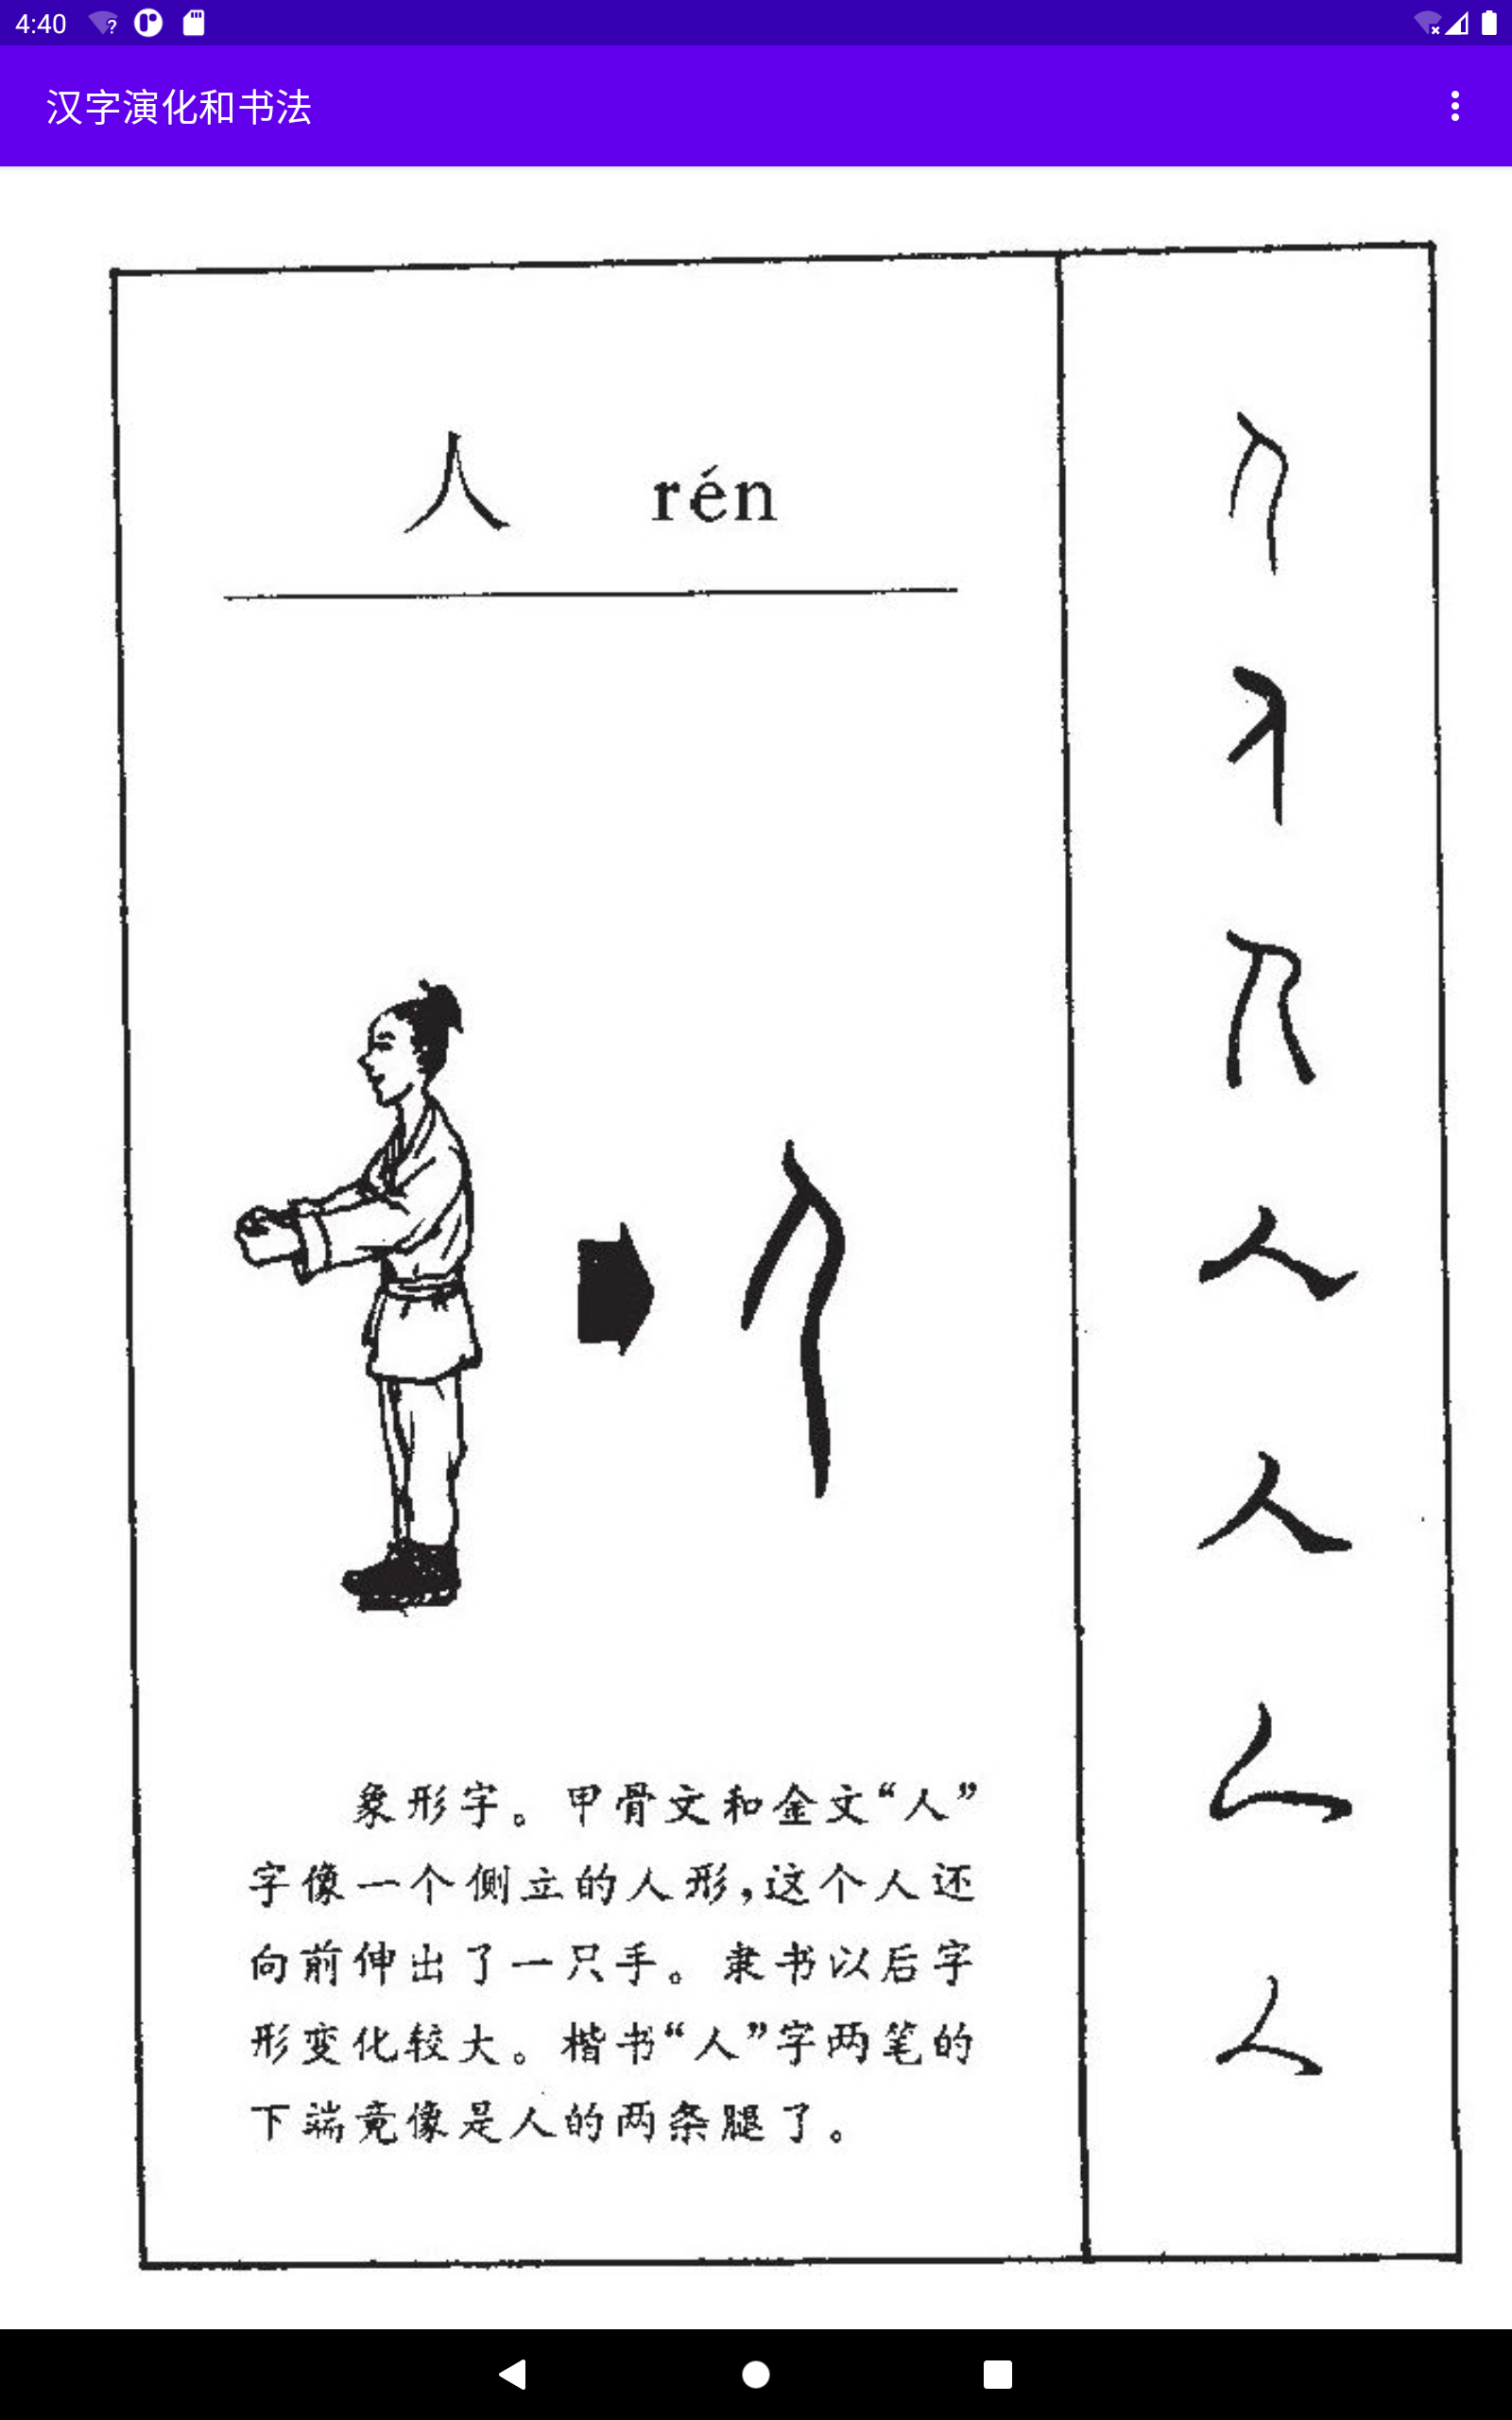 4:40
汉字演化和书法
人 rén
象形字。甲骨文和金文“人”
字像一个侧立的人形,这个人还
向前伸出了一只手。隶书以后字
形变化较大。楷书“人”字两笔的
下端竟像是人的两条腿了。
人
人
人
人
人
人
人